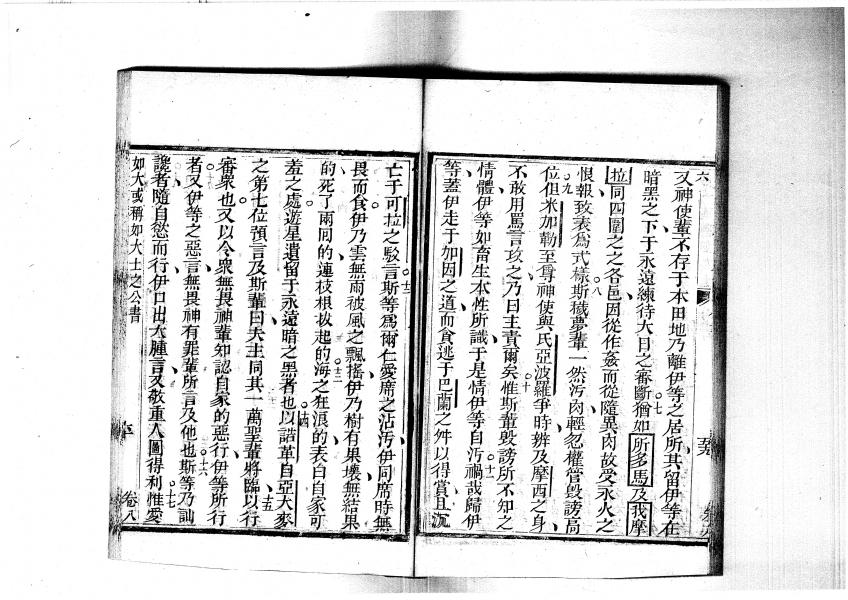 六
又神使輩不存于本田地乃離伊等之居所其留伊等在
暗黑之下于永遠練待大日之審斷猶如所多馬及我摩
拉同四圍之之各邑因從作姦而從隨異肉故受永火之
恨報致表為式樣斯穢夢輩一然污肉輕忽權官毀謗高
位但米加勒至尊神使與氏亞波羅爭時辨及摩西之身
不敢用罵言攻之乃曰主責爾矣惟斯輩毀謗所不知之
情體伊等如畜生本性所識于是情伊等自污禍哉歸伊
等蓋伊走于加因之道而食逃于巴蘭之舛以得賞且沉
亡于可拉之駁言斯等為爾仁愛席之沾污伊同席時無
畏而食伊乃雲無雨被風之飄搖伊乃樹有果壞無結果
的死了兩回的連枝根拔起的海之狂浪的表白自家可
羞之處遊星遺留于永遠暗之黑者也以諾革自亞大麥
之第七位預言及斯輩曰夫主同其一萬聖輩將臨以行
審衆也又以令衆無畏神輩知認自家的惡行伊等所行
者又伊等之惡言無畏神有罪輩所言及他也斯等乃訕
讒者隨自慾而行伊口出大腫言又敬重人圖得利惟愛
如大或稱如大士之公書
卷八